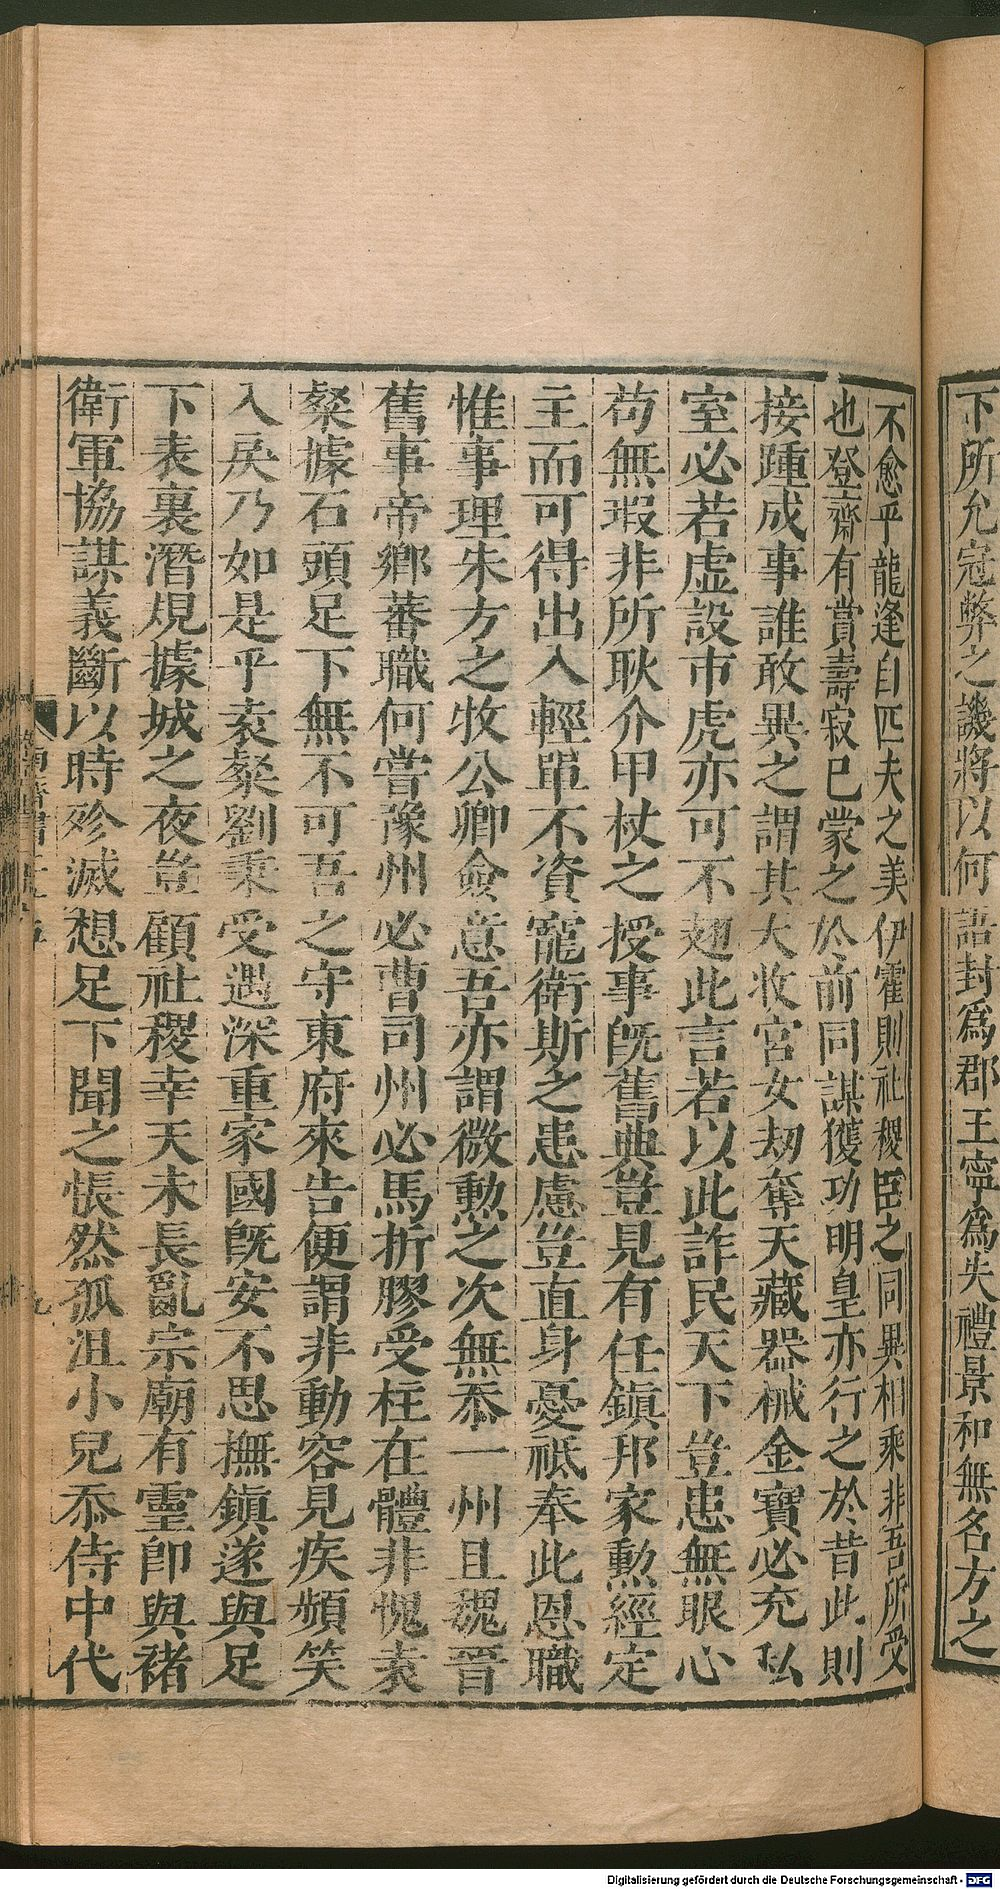 下所允冠弊之譏將以何語封爲郡王寧爲失禮景和無名方之
不愈乎龍逢自匹夫之美伊霍則社稷臣之同異相乘非吾所受
也登齋有賞壽寂已蒙之於前同謀獲功明皇亦行之於昔此則
接踵成事誰敢異之謂其大收宮女劫奪天藏器械金寶必充私
室必若虛設市虎亦可不翅此言若以此詐民天下豈患無眼心
苟無瑕非所耿介甲杖之授事既舊典豈見有任鎮邦家勳經定
主而可得出入輕單不資寵衛斯之患慮豈直身憂祗奉此恩職
惟事理朱方之牧公卿僉意吾亦謂微勲之次無忝一州且魏晉
舊事帝鄉蕃職何嘗豫州必曹司州必馬折膠受柱在體非愧袁
粲據石頭足下無不可吾之守東府來告便謂非動容見疾頻笑
入戾乃如是乎袁粲劉秉受遇深重家國既安不思撫鎮遂與足
下表裏潛規據城之夜豈顧社稷幸天未長亂宗廟有靈卽與褚
衛軍協謀義斷以時殄滅想足下聞之悵然孤沮小兒忝侍中代
南齊書
九
Digitalisierung gefördert durch die Deutsche Forschungsgemeinschaft - DFG